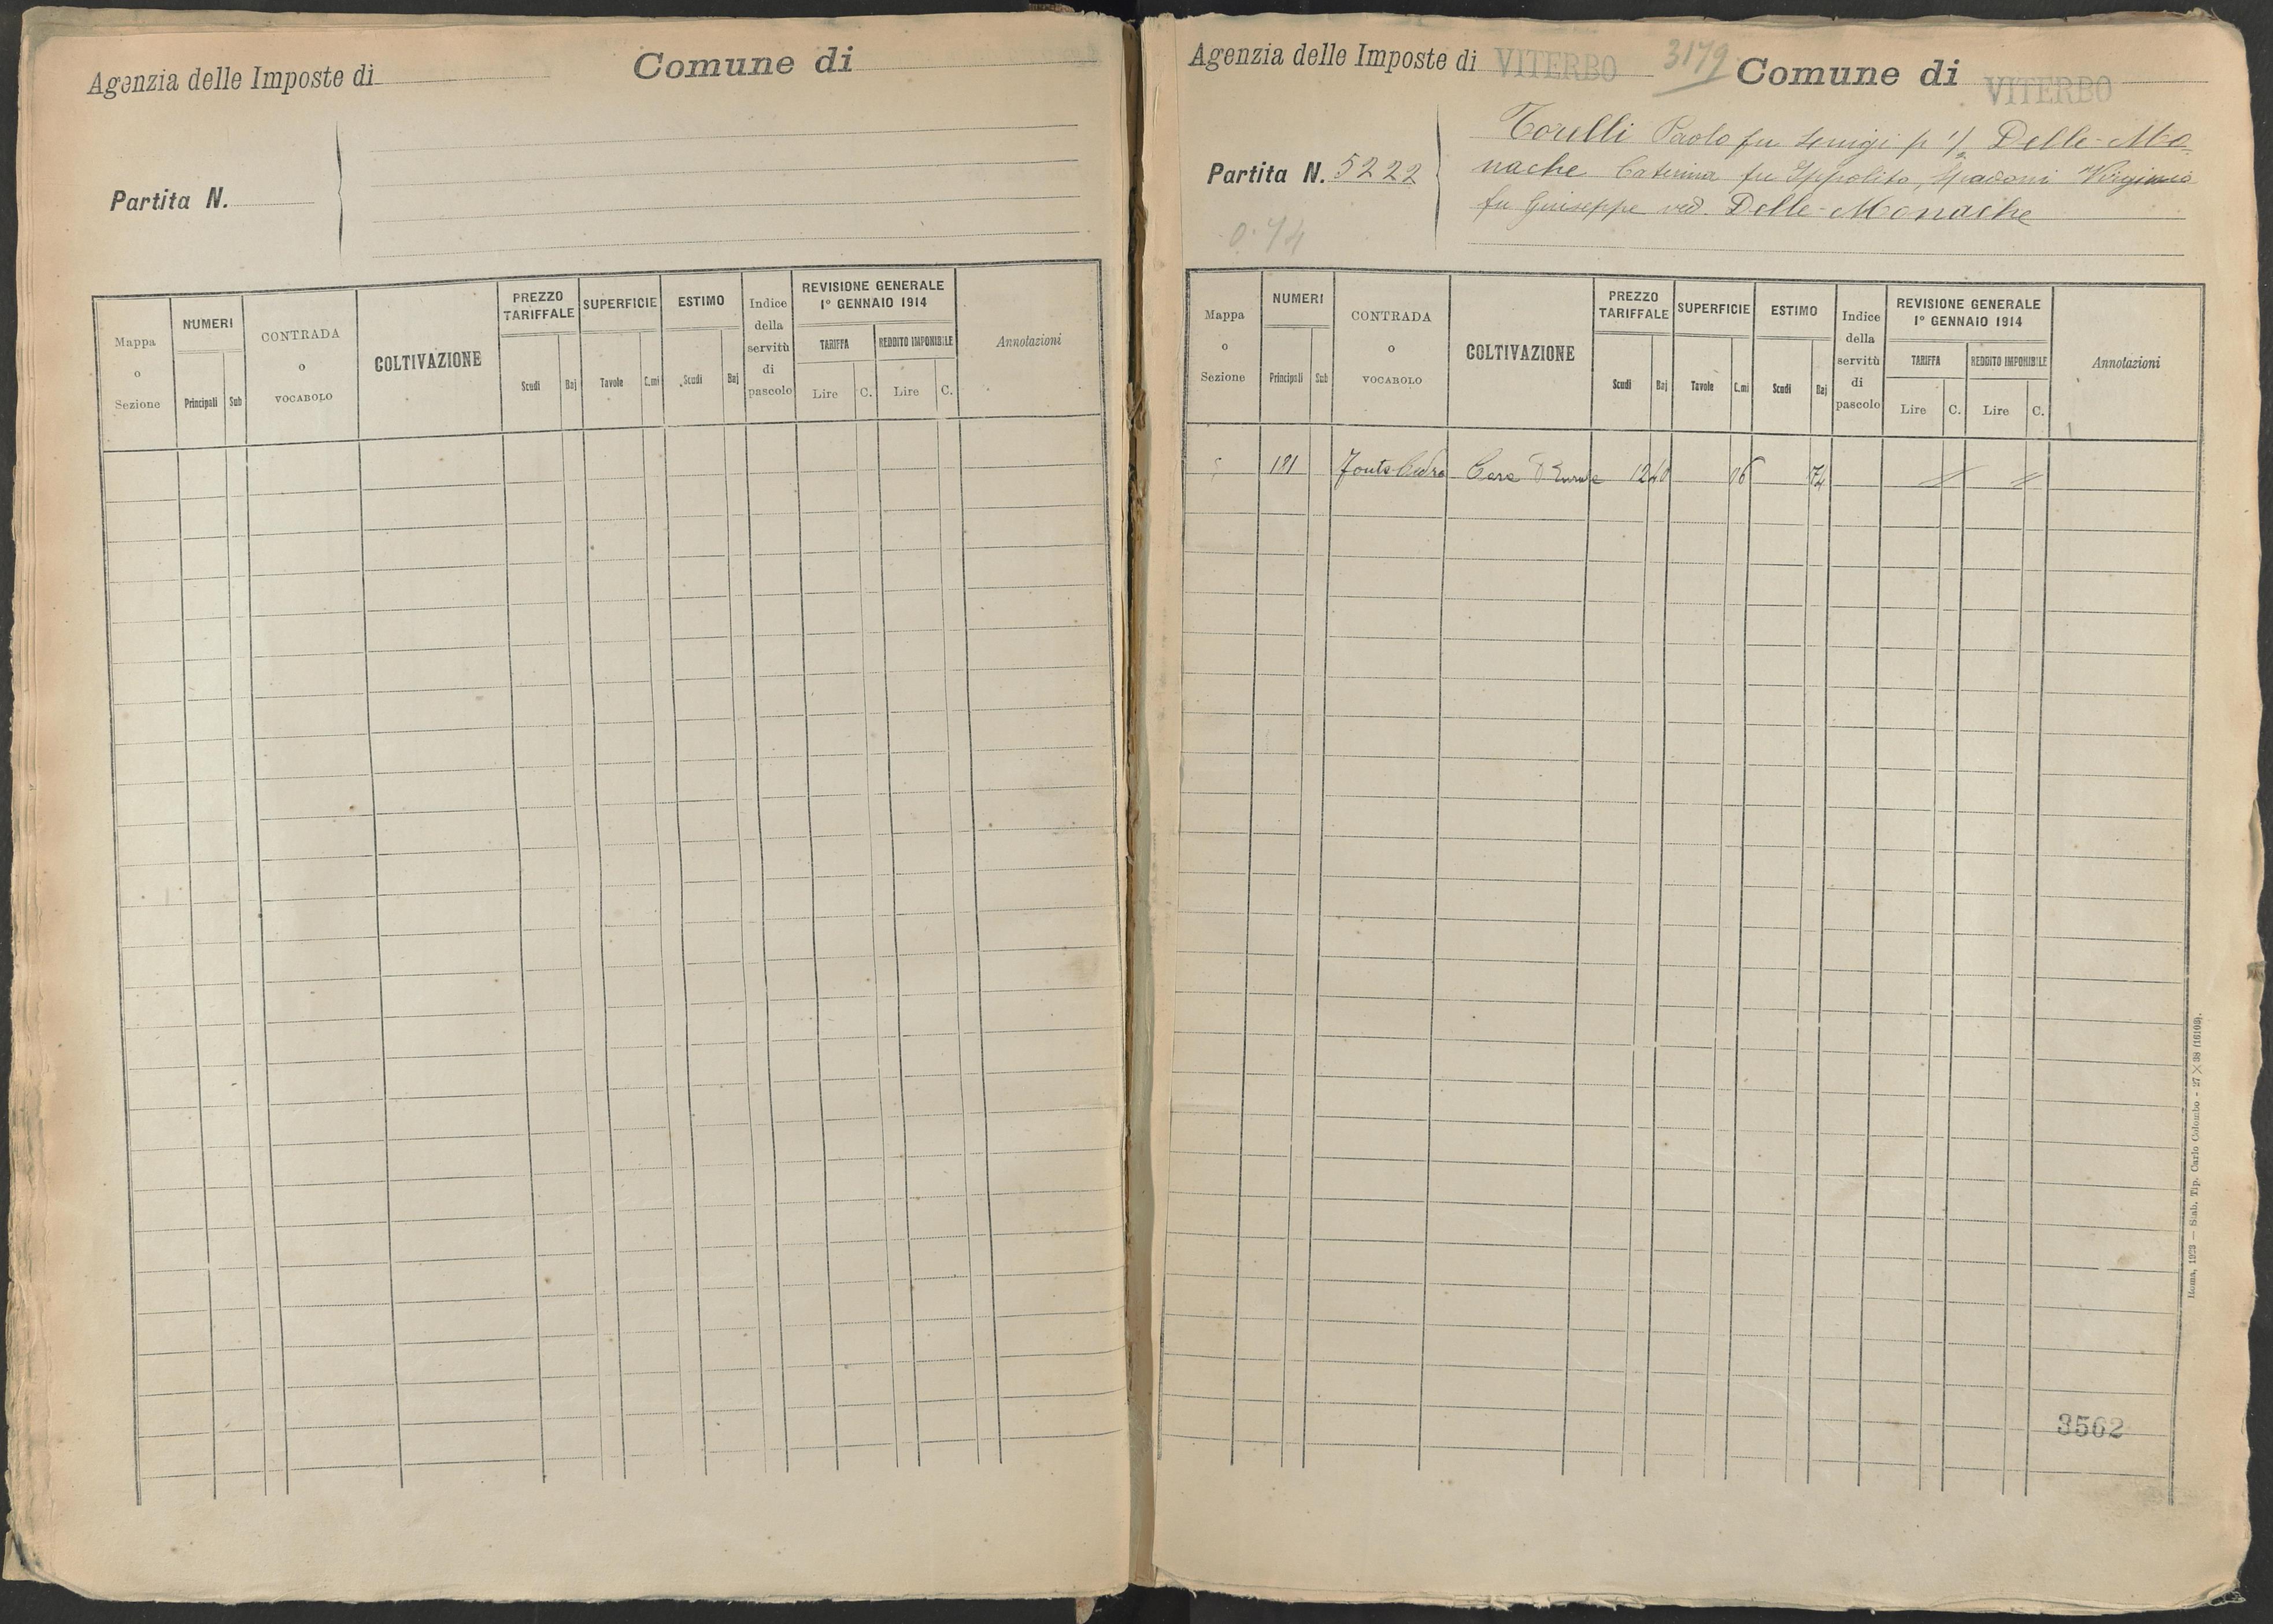 Agenzia delle Imposte di
Comune di
Partita N.
Mappa o Sezione
NUMERI
Principali
Sub
CONTRADA o VOCABOLO
COLTIVAZIONE
PREZZO TARIFFALE
Scudi
Baj
SUPERFICIE
Tavole
C.mi
ESTIMO
Scudi
Baj
Indice della servitù di pascolo
REVISIONE GENERALE
1° GENNAIO 1914
TARIFFA
REDDITO IMPONIBILE
Lire
C.
Lire
C.
Annotazioni
Agenzia delle Imposte di VITERBO
3179
Comune di VITERBO
Partita N. 5222
0.74
Torelli Paolo fu Luigi p Delle-Mo
nache Caterina fu Ippolito, Spadoni Virginia
fu Giuseppe ved. Delle-Monache
Mappa o Sezione
NUMERI
Principali
Sub
CONTRADA o VOCABOLO
COLTIVAZIONE
PREZZO TARIFFALE
Scudi
Baj
SUPERFICIE
Tavole
C.mi
ESTIMO
Scudi
Baj
Indice della servitù di pascolo
REVISIONE GENERALE
1° GENNAIO 1914
TARIFFA
REDDITO IMPONIBILE
Lire
C.
Lire
C.
Annotazioni
Casa 1240 06 74
Roma, 1923 — Stab. Tip. Carlo Colombo - 27×38 (16103).
3562